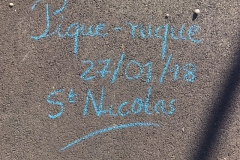 Pique-nique
27/01/18
St Nicolas